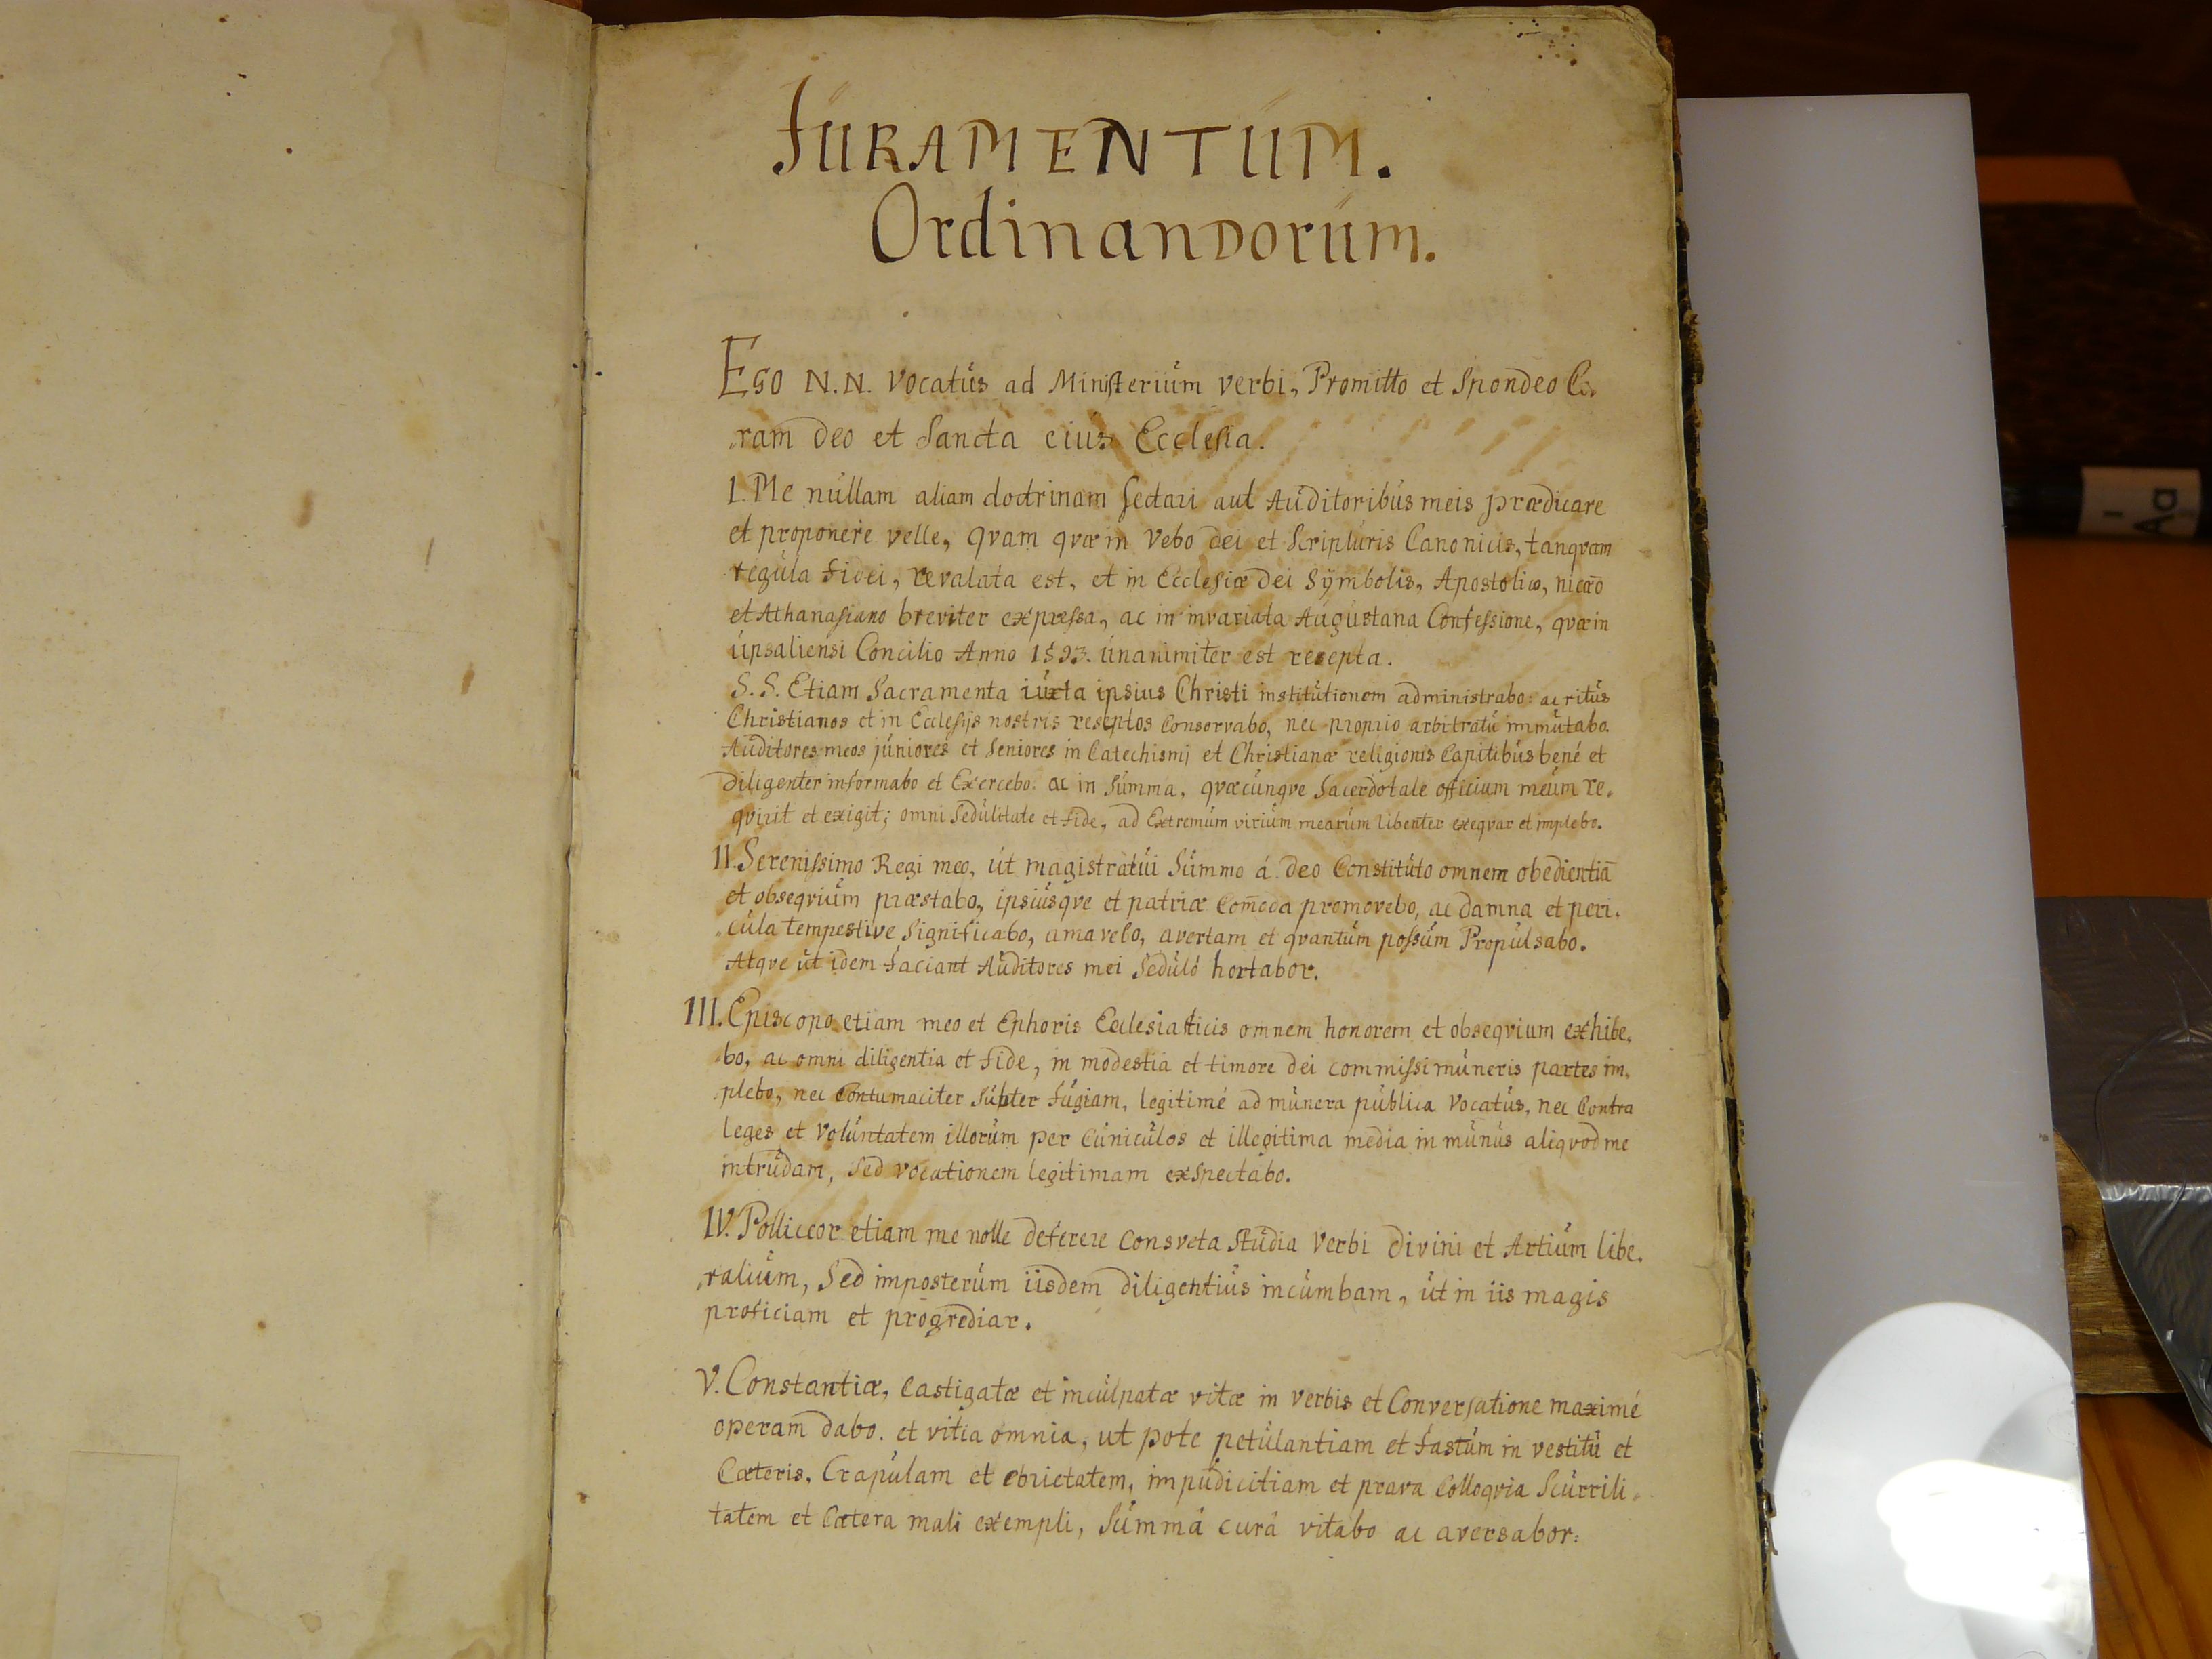 JURAMENTUM.
Ordinandorum.
Ego N.N. Vocatus ad Ministerium verbi, Promitto et Spondeo Co-
ram Deo et Sancta eius Ecclesia.
I. Me nullam aliam doctrinam Sectari aut Auditoribus meis prædicare
et proponere velle, qvam qvæ in Vebo dei et Scripturis Canonicis, tanqvam
regula fidei, revalata est, et in Ecclesiæ Dei Symbolis, Apostolico, nicæo
et Athanasiano breviter expressa, ac in invariata Augustana Confessione, qvæ in
upsaliensi Concilio Anno 1593. unanimiter est recepta.
S.S. Etiam Sacramenta iuxta ipsius Christi institutionem administrabo: ac ritus
Christianos et in Ecclesijs nostris reseptos Conservabo, nec proprio arbitratu immutabo.
Auditores meos juniores et Seniores in Catechismj et Christianæ religionis Capitibus bené et
Diligenter informabo et Exercebo: ac in Summa, qvæcunqve Sacerdotale officium meum re-
qvirit et exigit; omni Sedulitate et fide, ad Extremum virium mearum libenter exeqvar et implebo.
II. Serenissimo Regi meo, ut magistratui Summo á Deo Constituto omnem obedientiā
et obseqvium præstabo, ipsiusqve et patriæ Com̄oda promovebo, ac Damna et peri-
cula tempestive Significabo, amavebo, avertam et qvantum possum Propulsabo.
Atqve ut idem faciant Auditores mei Seduló hortabor.
III. Episcopo etiam meo et Ephoris Ecclesiasticis omnem honorem et obseqvium exhibe-
bo, ac omni diligentia et fide, in modestia et timore Dei commissi muneris partes im-
plebo, nec Contumaciter Subter fugiam, legitimé ad munera publica Vocatus, nec Contra
leges et Voluntatem illorum per Cuniculos et illegitima media in munus aliqvod me
intrudam, Sed vocationem legitimam exspectabo.
IV. Polliceor etiam me nolle deferere Consveta Studia Verbi Divini et Artium libe-
ralium, Sed imposterum iisdem diligentius incumbam, ut in iis magis
proficiam et progrediar.
V. Constantiæ, Castigatæ et inculpatæ vitæ in verbis et Conversatione maximé
operam dabo. et vitia omnia, ut pote petulantiam et fastum in vestitu et
Cæteris, Crapulam et ebrietatem, impudicitiam et prava Colloqvia Scurrili-
tatem et Cætera mali exempli, Summá curá vitabo ac aversabor:
I
Aa